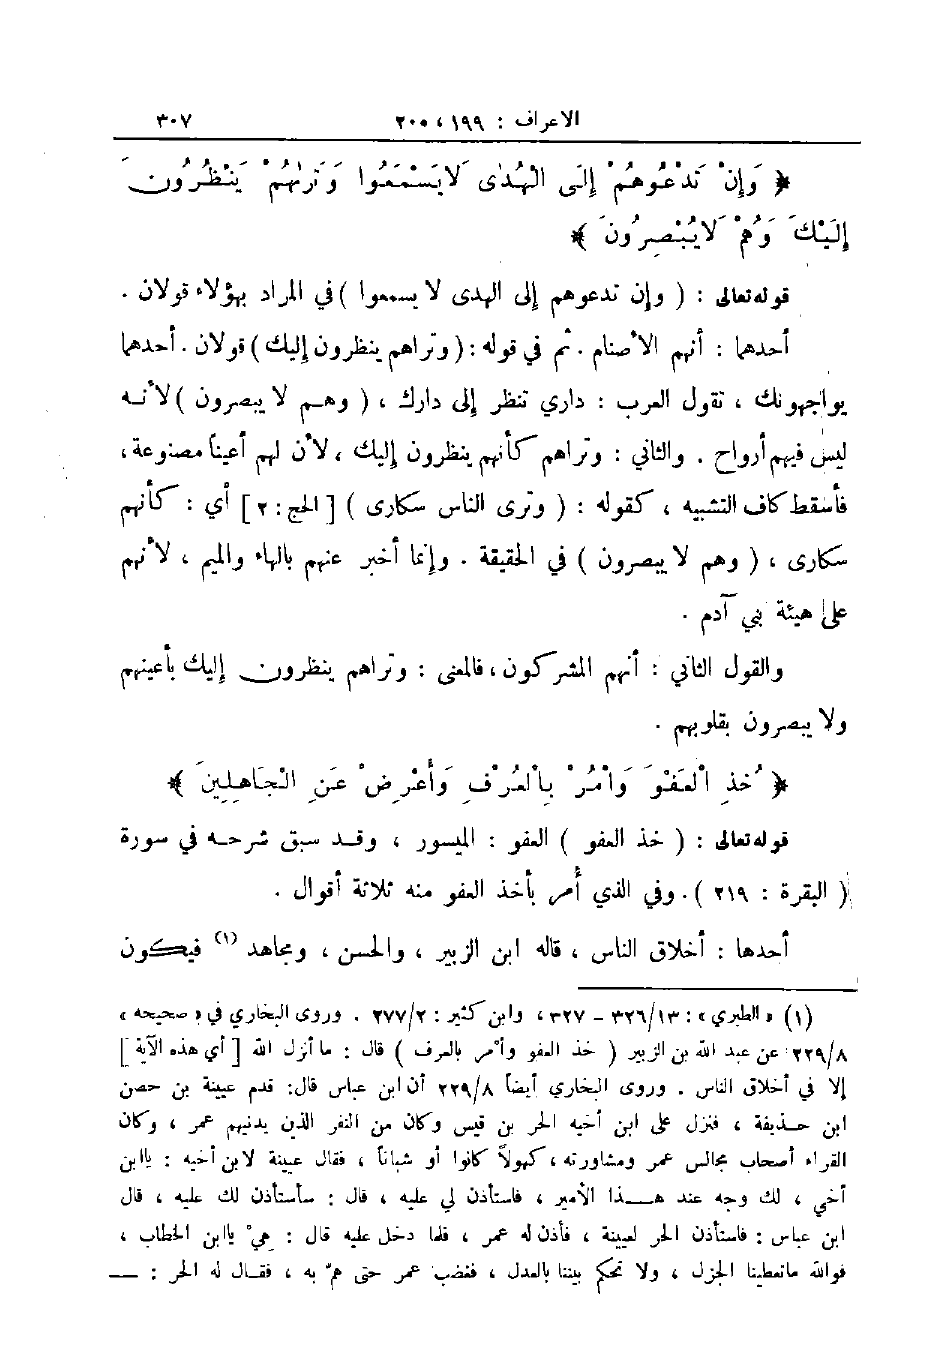 الاعراف : ١٩٩ ، ٢٠٠ ٣٠٧
﴿ وَإِنْ تَدْعُوهُمْ إِلَى الْهُدَى لَا يَسْمَعُوا وَتَرَاهُمْ يَنْظُرُونَ
إِلَيْكَ وَهُمْ لَا يُبْصِرُونَ ﴾
قوله تعالى : ( وإن تدعوهم إلى الهدى لا يسمعوا ) في المراد بهؤلاء قولان .
أحدهما : أنهم الأصنام . ثم في قوله : ( وتراهم ينظرون إليك ) قولان . أحدهما
يواجهونك ، تقول العرب : داري تنظر إلى دارك ، ( وهم لا يبصرون ) لأنه
ليس فيهم أرواح . والثاني : وتراهم كأنهم ينظرون إليك ، لأن لهم أعيناً مصنوعة ،
فأسقط كاف التشبيه ، كقوله : ( وترى الناس سكارى ) [ الحج : ٢ ] أي : كأنهم
سكارى ، ( وهم لا يبصرون ) في الحقيقة . وإنما أخبر عنهم بالهاء والميم ، لأنهم
على هيئة بني آدم .
والقول الثاني : أنهم المشركون ، فالمعنى : وتراهم ينظرون إليك بأعينهم
ولا يبصرون بقلوبهم .
﴿ خُذِ الْعَفْوَ وَأْمُرْ بِالْعُرْفِ وَأَعْرِضْ عَنِ الْجَاهِلِينَ ﴾
قوله تعالى : ( خذ العفو ) العفو : الميسور ، وقد سبق شرحه في سورة
( البقرة : ٢١٩ ) . وفي الذي أُمر بأخذ العفو منه ثلاثة أقوال .
أحدها : أخلاق الناس ، قاله ابن الزبير ، والحسن ، ومجاهد (١) فيكون
(١) « الطبري » : ٣٢٦/١٣ – ٣٢٧ ، وابن كثير : ٢٧٧/٢ . وروى البخاري في « صحيحه »
٢٢٩/٨ عن عبد الله بن الزبير ( خذ العفو وأمر بالعرف ) قال : ما أنزل الله [ أي هذه الآية ]
إلا في أخلاق الناس . وروى البخاري أيضاً ٢٢٩/٨ أن ابن عباس قال : قدم عيينة بن حصن
ابن حذيفة ، فنزل على ابن أخيه الحر بن قيس وكان من النفر الذين يدنيهم عمر ، وكان
القراء أصحاب مجالس عمر ومشاورته ، كهولاً كانوا أو شباناً ، فقال عيينة لابن أخيه : يا ابن
أخي ، لك وجه عند هذا الأمير ، فاستأذن لي عليه ، قال : سأستأذن لك عليه ، قال
ابن عباس : فاستأذن الحر لعيينة ، فأذن له عمر ، فلما دخل عليه قال : هيْ يا ابن الخطاب ،
فوالله ما تعطينا الجزل ، ولا تحكم بيننا بالعدل ، فغضب عمر حتى همّ به ، فقال له الحر : —